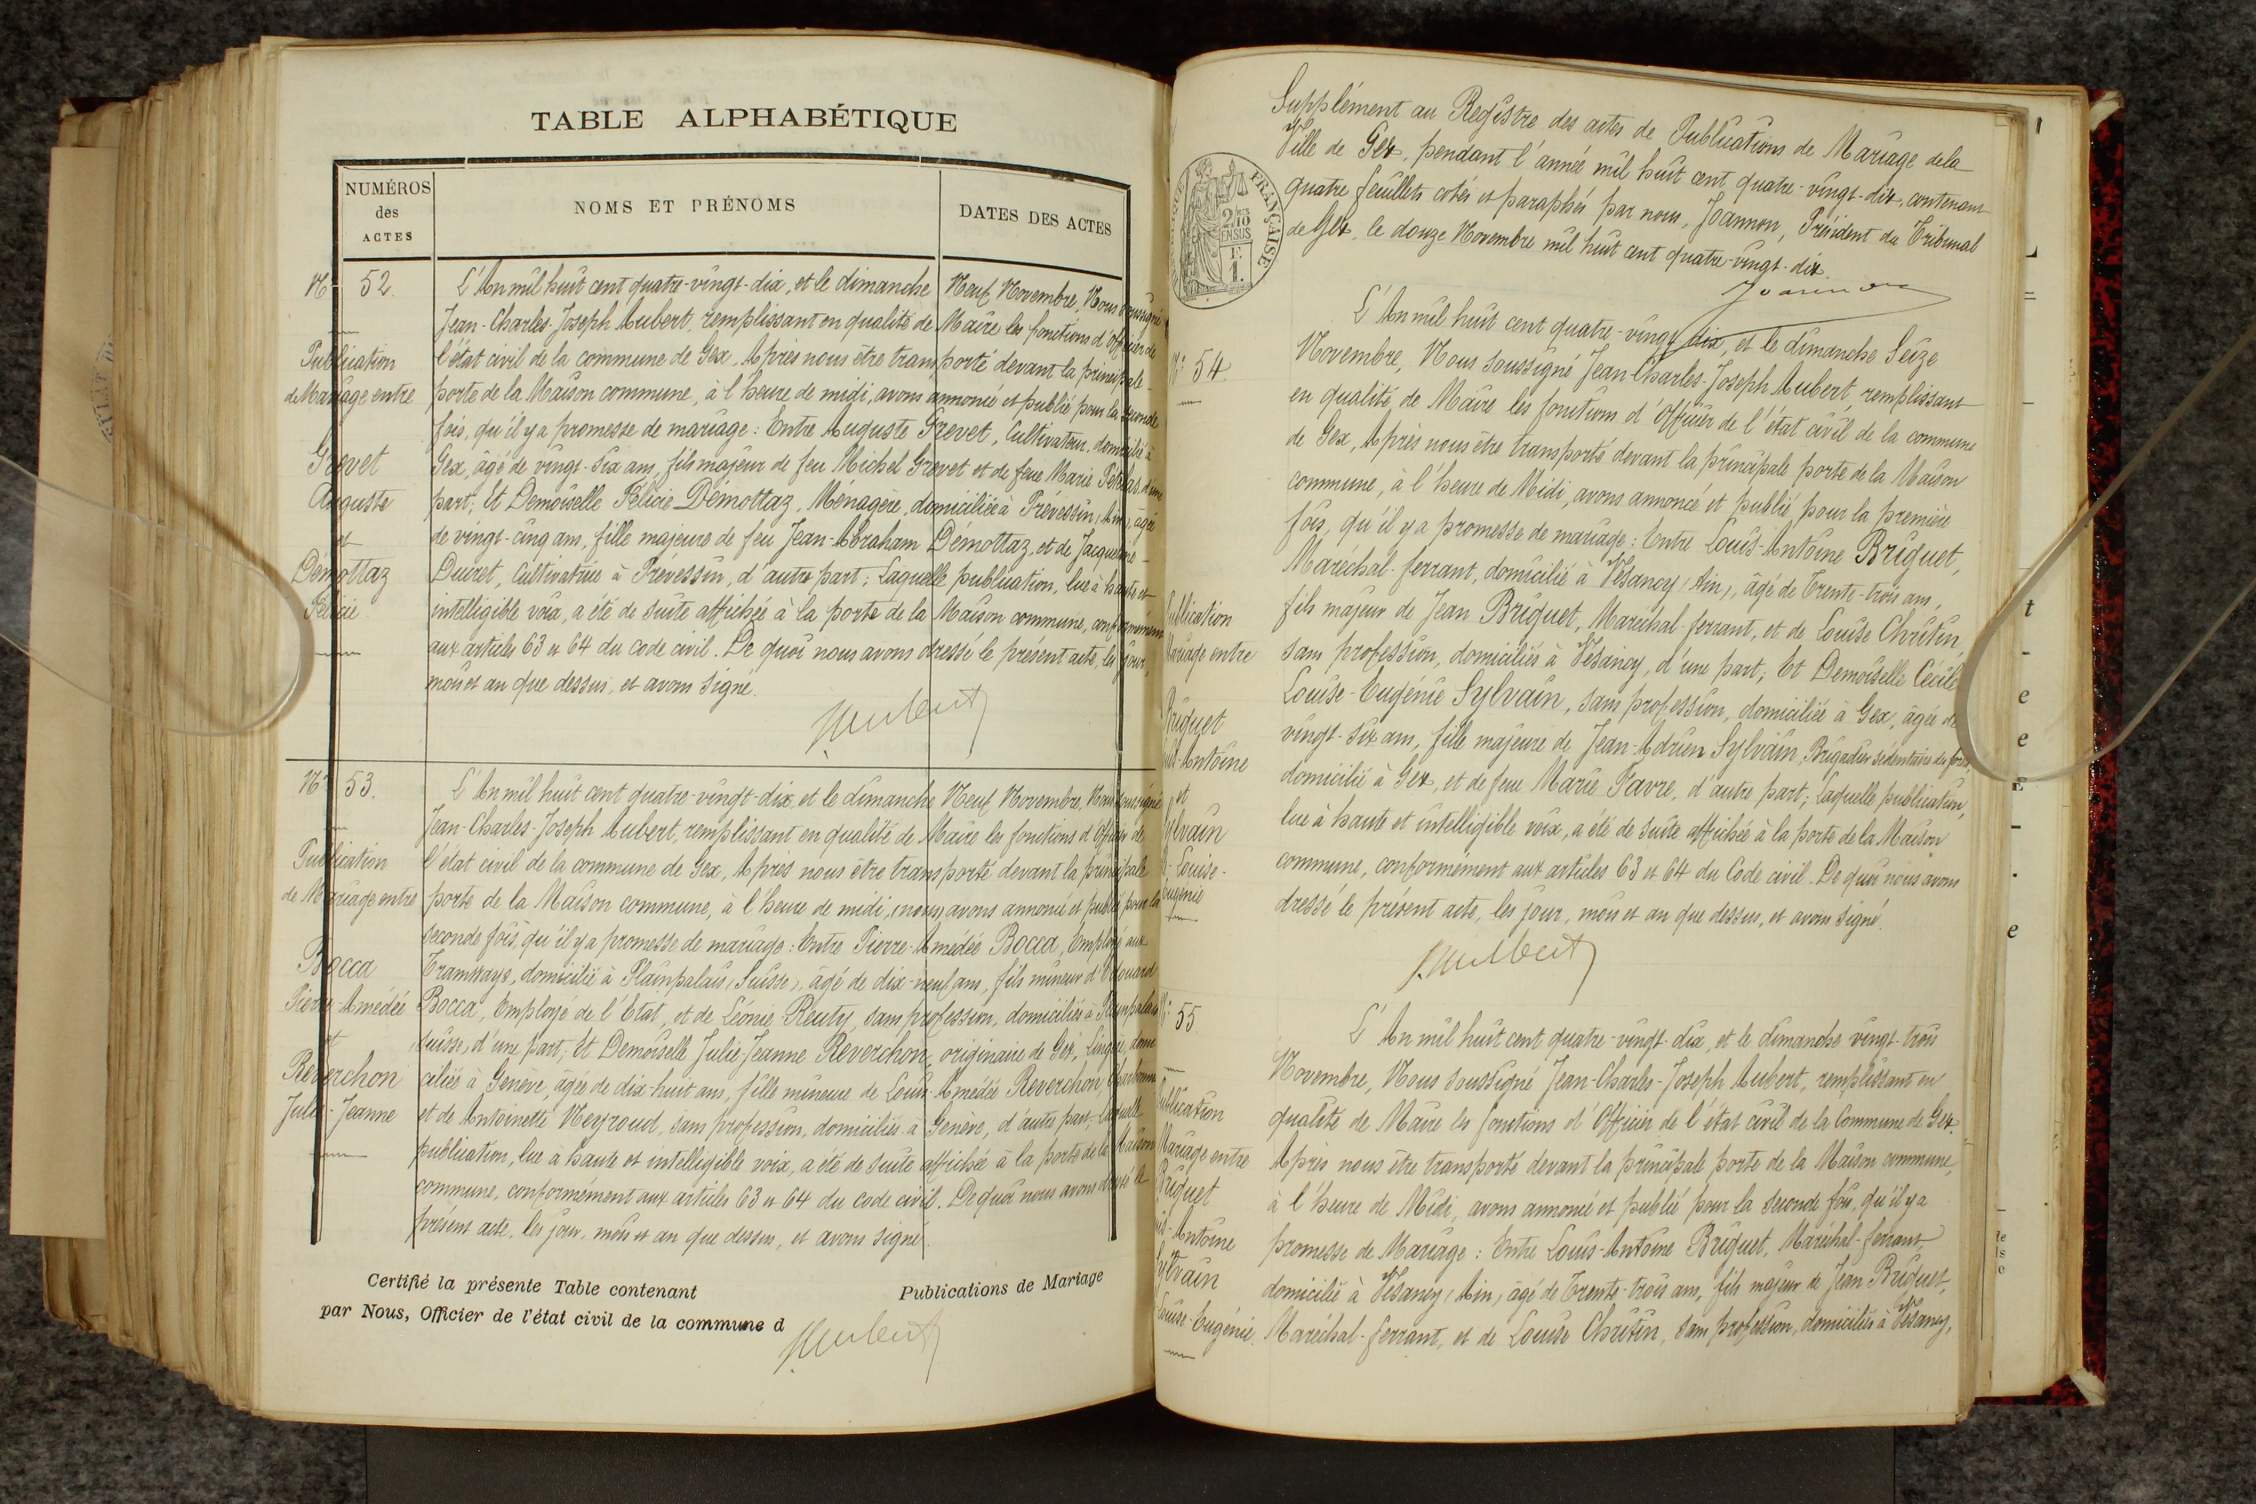 TABLE ALPHABÉTIQUE
NUMÉROS
des
ACTES
NOMS ET PRÉNOMS
DATES DES ACTES
N° 52.
Publication
de Mariage entre
Grevet
Auguste
et
Démottaz
Félicie
L'An mil huit cent quatre-vingt-dix, et le dimanche Neuf Novembre, Nous soussigné
Jean-Charles-Joseph Aubert, remplissant en qualité de Maire les fonctions d'Officier de
l'état civil de la commune de Gex, Après nous être transporté devant la principale
porte de la Maison commune, à l'heure de midi, avons annoncé et publié pour la seconde
fois, qu'il y a promesse de mariage : Entre Auguste Grevet, Cultivateur, domicilié à
Gex, âgé de vingt-six ans, fils majeur de feu Michel Grevet et de feue Marie d'une
part; Et Demoiselle Félicie Démottaz, Ménagère, domiciliée à Prévessin (Ain), âgée
de vingt-cinq ans, fille majeure de feu Jean-Abraham Démottaz, et de Jacqueline
Duiret, Cultivatrice à Prévessin, d'autre part; Laquelle publication, lue à haute et
intelligible voix, a été de suite affichée à la porte de la Maison commune, conformément
aux articles 63 et 64 du code civil. De quoi nous avons dressé le présent acte, les jour,
mois et an que dessus, et avons signé.
J. Aubert
N° 53.
Publication
de Mariage entre
Bocca
Pierre-Amédée
et
Reverchon
Julie-Jeanne
L'An mil huit cent quatre-vingt-dix, et le dimanche Neuf Novembre, Nous soussigné
Jean-Charles-Joseph Aubert, remplissant en qualité de Maire les fonctions d'Officier de
l'état civil de la commune de Gex, Après nous être transporté devant la principale
porte de la Maison commune, à l'heure de midi, (nous) avons annoncé et publié pour la
seconde fois, qu'il y a promesse de mariage : Entre Pierre-Amédée Bocca, Employé aux
Tramways, domicilié à Plainpalais (Suisse), âgé de dix-neuf ans, fils mineur d'Edouard
Bocca, Employé de l'Etat, et de Léonie Reuty, sans profession, domiciliés à Plainpalais
(Suisse), d'une part; Et Demoiselle Julie-Jeanne Reverchon, originaire de Gex, Lingère, domi
ciliée à Genève, âgée de dix-huit ans, fille mineure de Louis-Amédée Reverchon,
et de Antoinette Meyroud, sans profession, domiciliés à Genève, d'autre part; Laquelle
publication, lue à haute et intelligible voix, a été de suite affichée à la porte de la Maison
commune, conformément aux articles 63 et 64 du code civil. De quoi nous avons dressé le
présent acte, les jour, mois et an que dessus, et avons signé.
Certifié la présente Table contenant Publications de Mariage
par Nous, Officier de l'état civil de la commune d
J. Aubert
Supplément au Registre des actes de Publications de Mariage de la
Ville de Gex, pendant l'année mil huit cent quatre-vingt-dix, contenant
quatre feuillets cotés et paraphés par nous, Joannon, Président du Tribunal
de Gex, le douze Novembre mil huit cent quatre-vingt-dix.
Joannon
FRANÇAISE
2/10
EN SUS
1 F.
N° 54.
Publication
Mariage entre
Briquet
Louis-Antoine
et
Sylvain
Louise-
Eugénie
L'An mil huit cent quatre-vingt-dix, et le dimanche Seize
Novembre, Nous soussigné Jean-Charles-Joseph Aubert, remplissant
en qualité de Maire les fonctions d'Officier de l'état civil de la commune
de Gex, Après nous être transporté devant la principale porte de la Maison
commune, à l'heure de Midi, avons annoncé et publié pour la première
fois, qu'il y a promesse de mariage : Entre Louis-Antoine Briquet,
Maréchal-ferrant, domicilié à Vésancy (Ain), âgé de Trente-trois ans,
fils majeur de Jean Briquet, Maréchal-ferrant, et de Louise Chrétin,
sans profession, domiciliés à Vésancy, d'une part; Et Demoiselle Cécile
Louise-Eugénie Sylvain, sans profession, domiciliée à Gex, âgée de
vingt-six ans, fille majeure de Jean-Adrien Sylvain, Brigadier sédentaire des forêts,
domicilié à Gex, et de feue Marie Favre, d'autre part; Laquelle publication,
lue à haute et intelligible voix, a été de suite affichée à la porte de la Maison
commune, conformément aux articles 63 et 64 du Code civil. De quoi nous avons
dressé le présent acte, les jour, mois et an que dessus, et avons signé.
J. Aubert
N° 55
Publication
Mariage entre
Briquet
Louis-Antoine
Sylvain
Louise-Eugénie.
L'An mil huit cent quatre-vingt-dix, et le dimanche vingt-trois
Novembre, Nous soussigné Jean-Charles-Joseph Aubert, remplissant en
qualité de Maire les fonctions d'Officier de l'état civil de la Commune de Gex.
Après nous être transporté devant la principale porte de la Maison commune,
à l'heure de Midi, avons annoncé et publié pour la seconde fois, qu'il y a
promesse de Mariage : Entre Louis-Antoine Briquet, Maréchal-ferrant,
domicilié à Vésancy (Ain) âgé de Trente-trois ans, fils majeur de Jean Briquet,
Maréchal-ferrant, et de Louise Chrétin, sans profession, domiciliés à Vésancy,